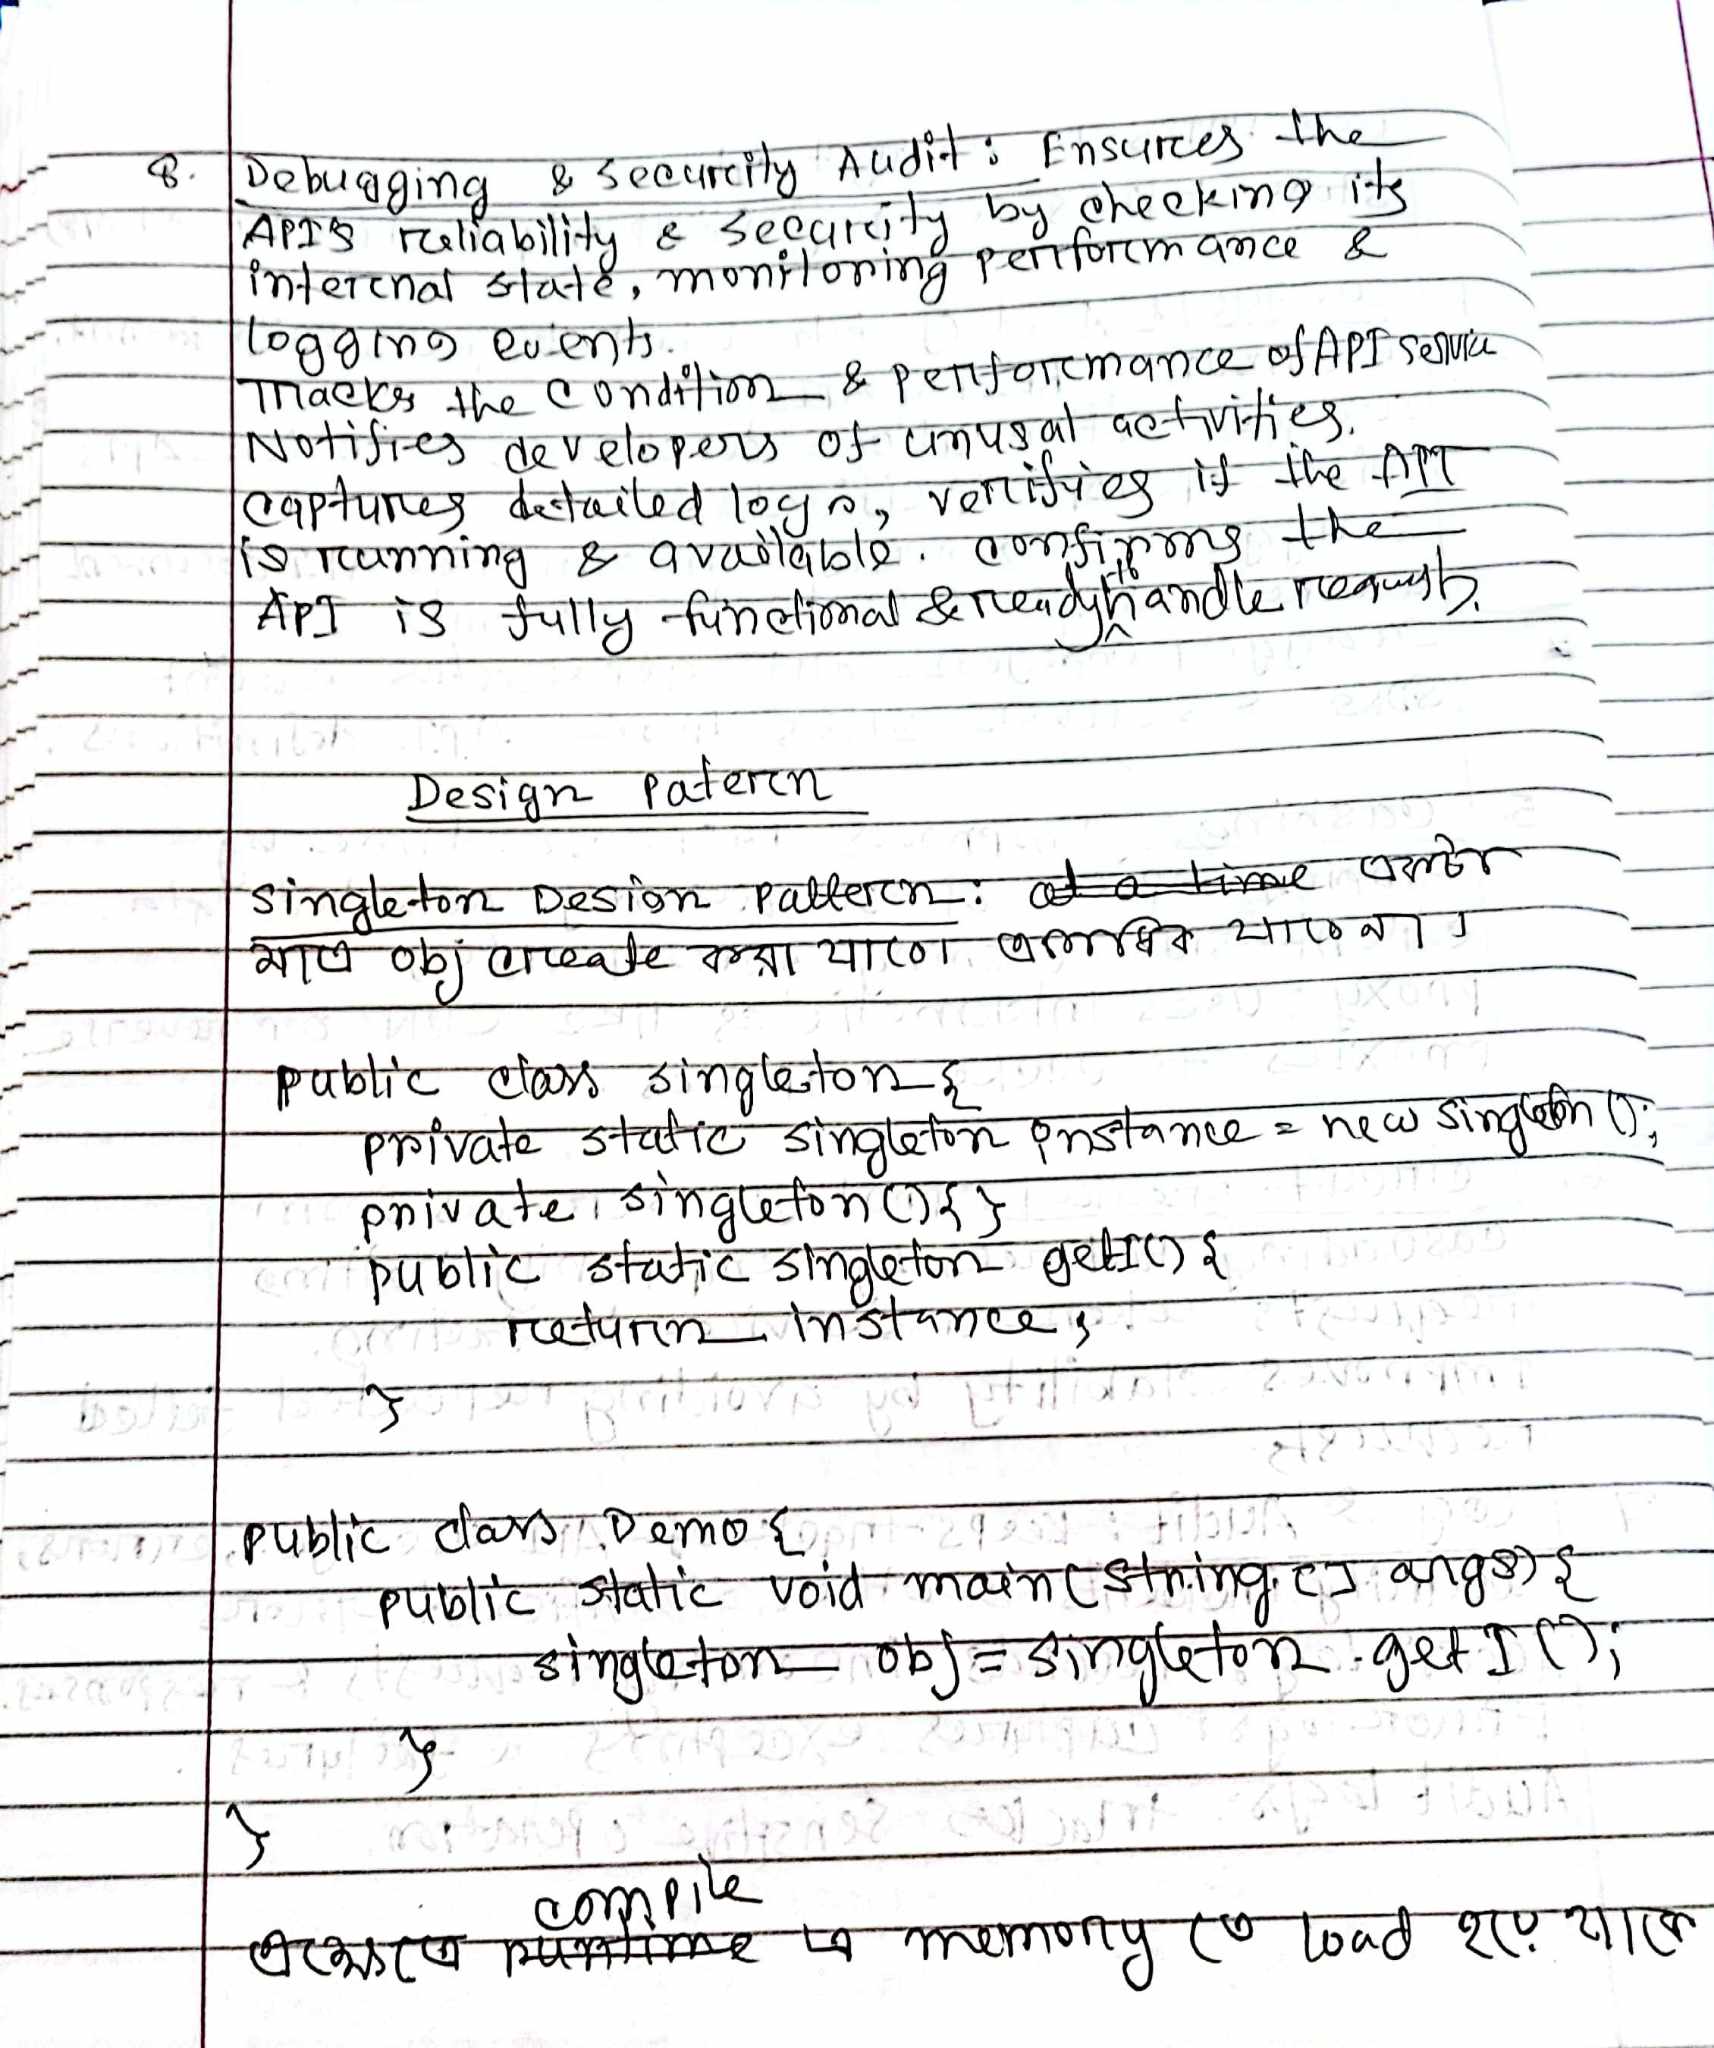 8. Debugging & Security Audit : Ensures the
API's reliability & security by checking its
internal state, monitoring performance &
logging events.
Tracks the condition & performance of API service
Notifies developers of unusal activities.
captures detailed logs, verifies if the API
is running & available. confirms the
API is fully functional & ready to handle requests.
Design Patern
Singleton Design Pattern : ~~at a time~~ একটি
মাত্র obj create করা যাবে। একাধিক যাবে না।
public class singleton {
private static singleton instance = new singleton ();
private singleton () { }
public static singleton getI() {
return instance;
}
public class Demo {
public static void main (string [] args) {
singleton obj = singleton . getI ();
}
}
compile
এক্ষেত্রে ~~runtime~~ এ memory তে load হয়ে থাকে